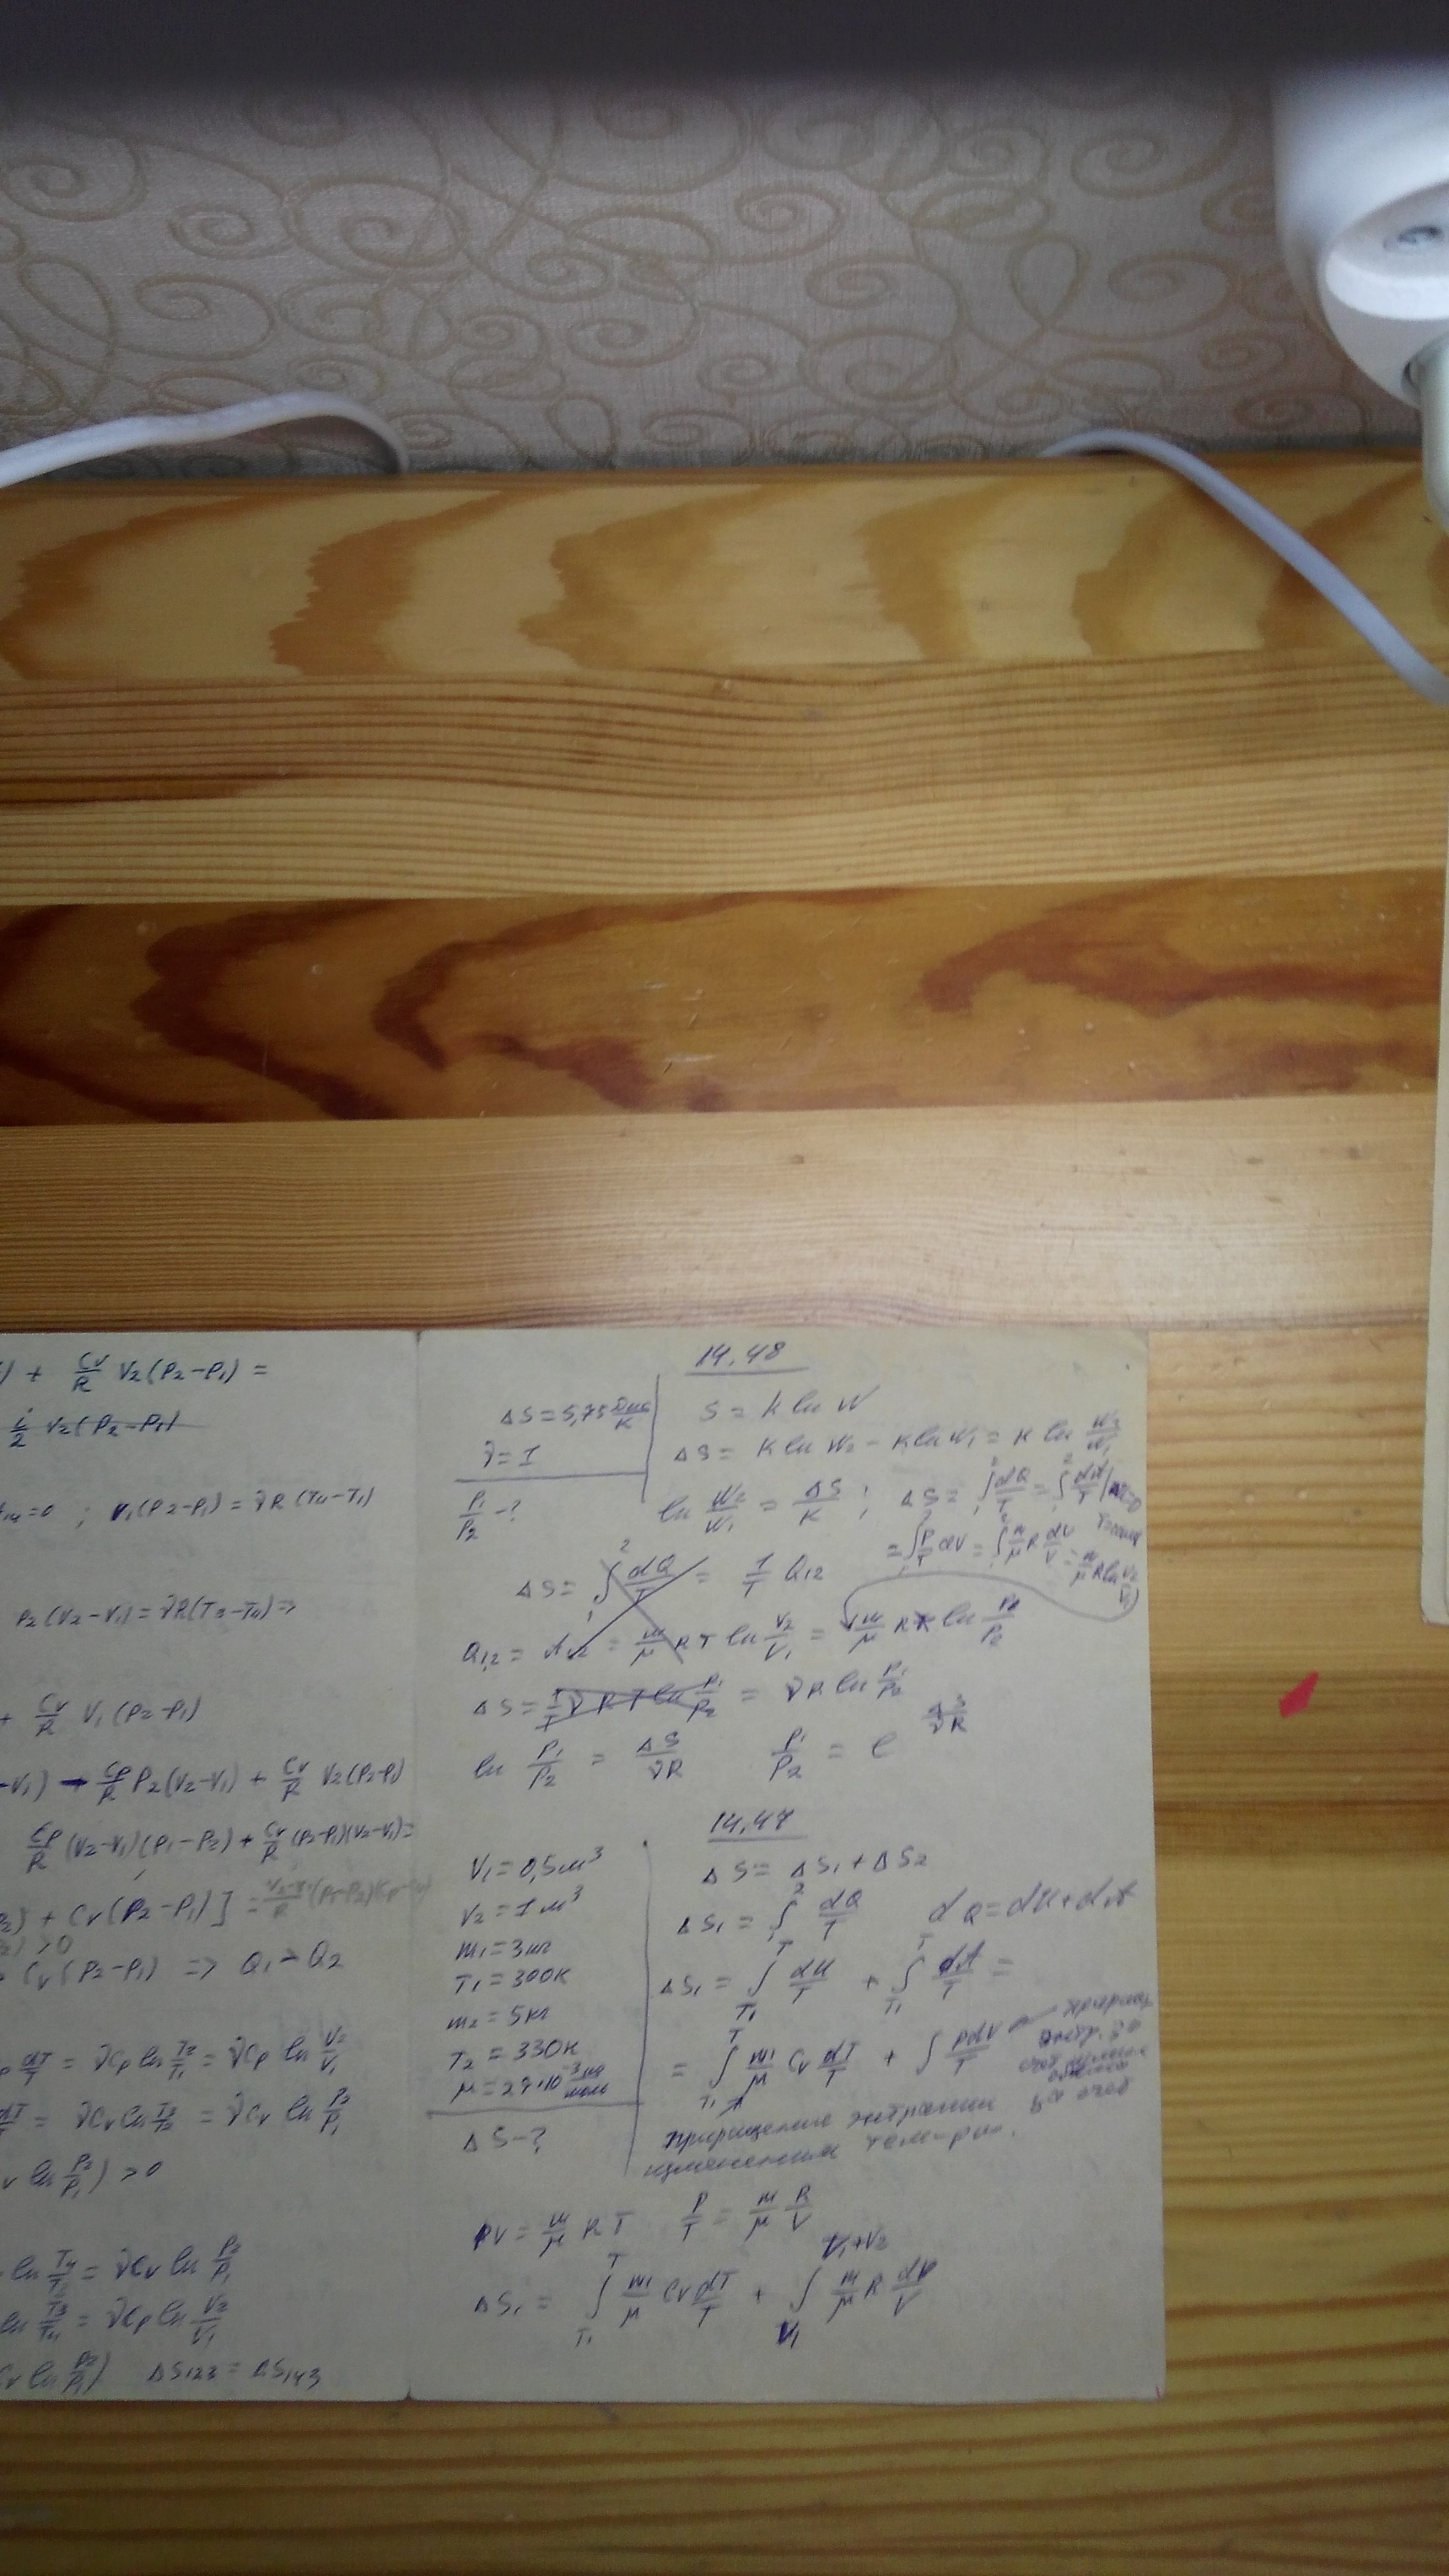 ) + Cv/R V2(P2-P1) =
i/2 V2(P2-P1)
=0 ; V1(P2-P1) = νR(T4-T1)
P2(V2-V1) = νR(T3-T4) =>
+ Cv/R V1(P2-P1)
-V1) - Cp/R P2(V2-V1) + Cv/R V2(P2-P1)
Cp/R (V2-V1)(P1-P2) + Cv/R (P2-P1)(V2-V1) =
) + Cv(P2-P1)] =
) > 0
Cv(P2-P1) => Q1 > Q2
dT/T = νCp ln T3/T1 = νCp ln V2/V1
dT/T = νCv ln T3/T2 = νCv ln P2/P1
v ln P2/P1) > 0
ln T4/T1 = νCv ln P2/P1
ln T3/T4 = νCp ln V2/V1
Cv ln P2/P1) ΔS123 = ΔS143
14.48
ΔS = 5,75 Дж/К
ν = 1
P1/P2 - ?
S = k ln W
ΔS = k ln W2 - k ln W1 = k ln W2/W1
ln W2/W1 = ΔS/k ; ΔS = ∫₁² dQ/T = ∫₁² dA/T
= ∫ P/T dV = ∫ m/μ R dV/V = m/μ R ln V2/V1
ΔS = ∫₁² dQ/T = 1/T Q12
Q12 = A12 = m/μ RT ln V2/V1 = m/μ RT ln P1/P2
ΔS = 1/T ν R T ln P1/P2 = νR ln P1/P2
ln P1/P2 = ΔS/νR P1/P2 = e^ΔS/νR
14.47
V1 = 0,5 м³
V2 = 1 м³
m1 = 3 кг
T1 = 300К
m2 = 5 кг
T2 = 330К
μ = 29·10⁻³ кг/моль
ΔS - ?
ΔS = ΔS1 + ΔS2
ΔS1 = ∫₁² dQ/T dQ = dU + dA
ΔS1 = ∫_T1^T dU/T + ∫_T1^T dA/T =
= ∫_T1^T m1/μ Cv dT/T + ∫ PdV/T
приращение энтропии за счёт
изменения темп-ры.
PV = m/μ RT P/T = m/μ R/V
ΔS1 = ∫_T1^T m1/μ Cv dT/T + ∫_V1^V1+V2 m/μ R dV/V